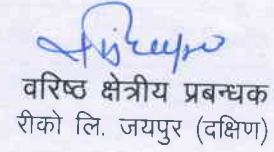 वरिष्ठ क्षेत्रीय प्रबन्धक
रीको लि. जयपुर (दक्षिण)